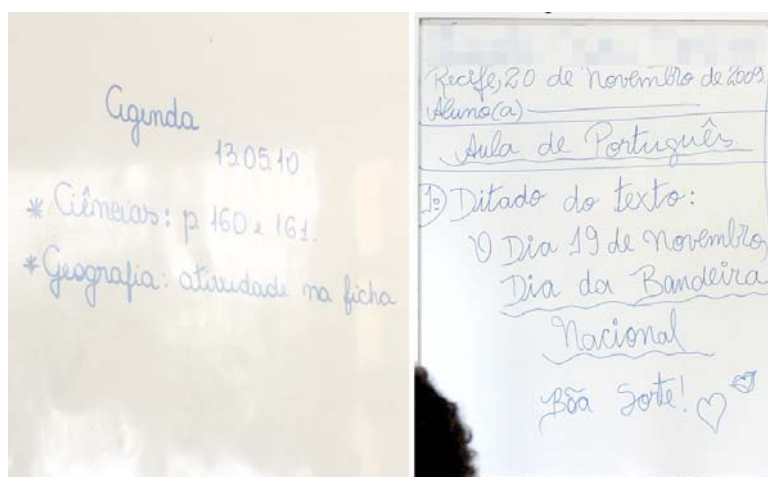 Agenda
13.05.10
* Ciências: p 160 e 161.
* Geografia: atividade na ficha
Recife, 20 de novembro de 2009
Aluno(a)
Aula de Português
1º) Ditado do texto:
O Dia 19 de novembro,
Dia da Bandeira
Nacional
Bôa Sorte!